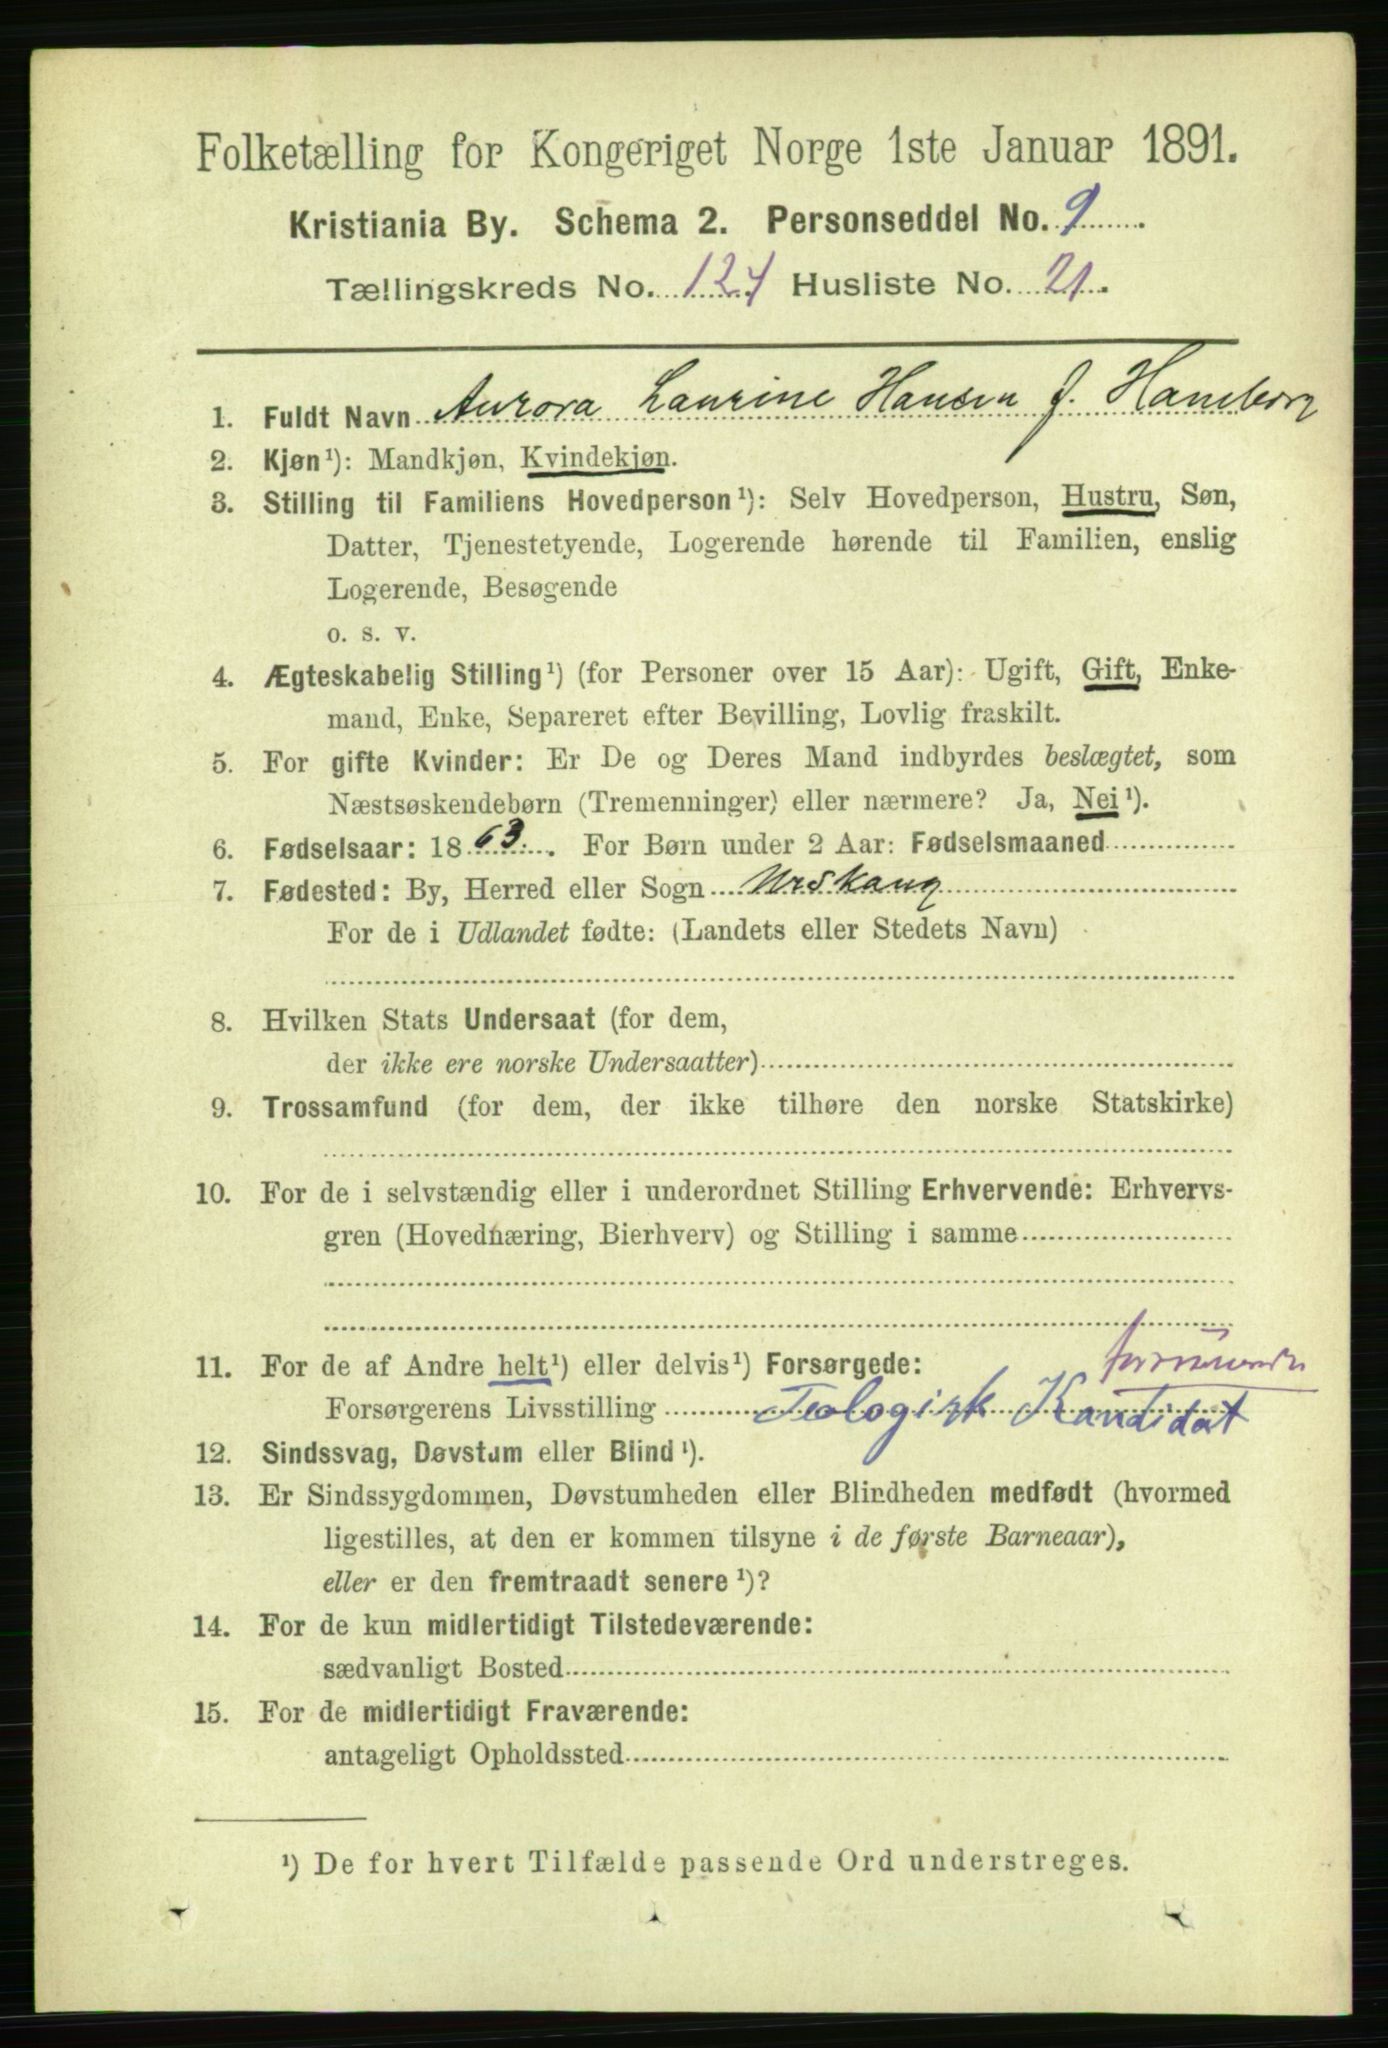 Folketælling for Kongeriget Norge 1ste Januar 1891.
Kristiania By. Schema 2. Personseddel No. 9
Tællingskreds No. 124 Husliste No. 21.
1. Fuldt Navn Aurora Laurine Hansen f. Haneborg
2. Kjøn¹): Mandkjøn, Kvindekjøn.
3. Stilling til Familiens Hovedperson¹): Selv Hovedperson, Hustru, Søn,
Datter, Tjenestetyende, Logerende hørende til Familien, enslig
Logerende, Besøgende
o. s. v.
4. Ægteskabelig Stilling¹) (for Personer over 15 Aar): Ugift, Gift, Enke-
mand, Enke, Separeret efter Bevilling, Lovlig fraskilt.
5. For gifte Kvinder: Er De og Deres Mand indbyrdes beslægtet, som
Næstsøskendebørn (Tremenninger) eller nærmere? Ja, Nei¹).
6. Fødselsaar: 1863. For Børn under 2 Aar: Fødselsmaaned
7. Fødested: By, Herred eller Sogn Urskaug
For de i Udlandet fødte: (Landets eller Stedets Navn)
8. Hvilken Stats Undersaat (for dem,
der ikke ere norske Undersaatter)
9. Trossamfund (for dem, der ikke tilhøre den norske Statskirke)
10. For de i selvstændig eller i underordnet Stilling Erhvervende: Erhvervs-
gren (Hovednæring, Bierhverv) og Stilling i samme
11. For de af Andre helt¹) eller delvis¹) Forsørgede:
Forsørgerens Livsstilling Teologisk Kandidat
12. Sindssvag, Døvstum eller Blind¹).
13. Er Sindssygdommen, Døvstumheden eller Blindheden medfødt (hvormed
ligestilles, at den er kommen tilsyne i de første Barneaar),
eller er den fremtraadt senere¹)?
14. For de kun midlertidigt Tilstedeværende:
sædvanligt Bosted
15. For de midlertidigt Fraværende:
antageligt Opholdssted
¹) De for hvert Tilfælde passende Ord understreges.